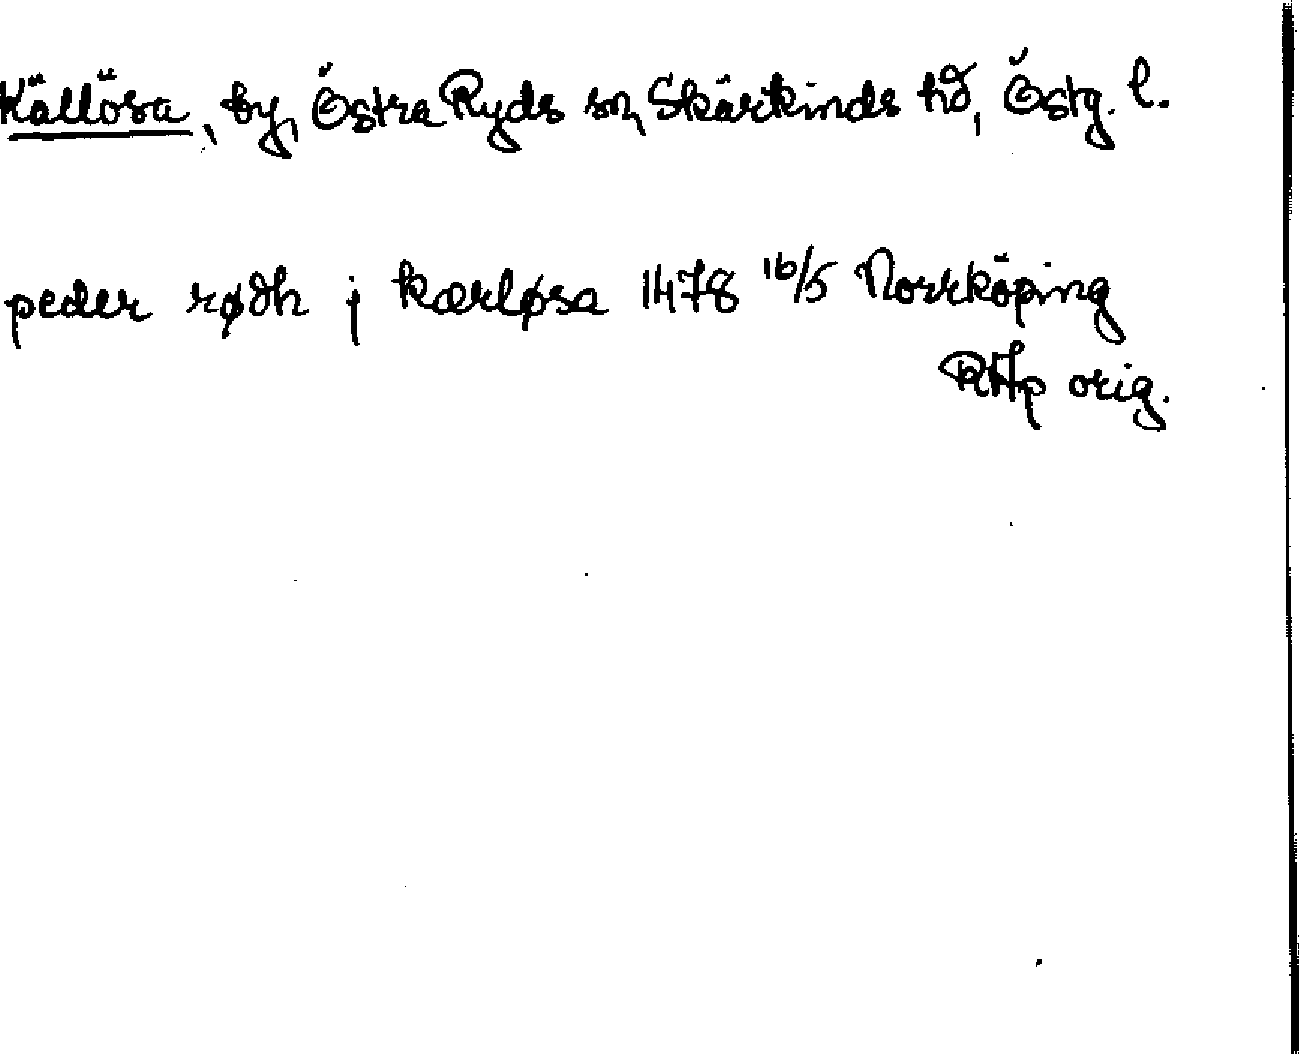 Källösa, by, Östra Ryds sn, Skärkinds hd, Östg. l.
peder rødh j kærløsa 1478 16/5 Norrköping
RAp orig.